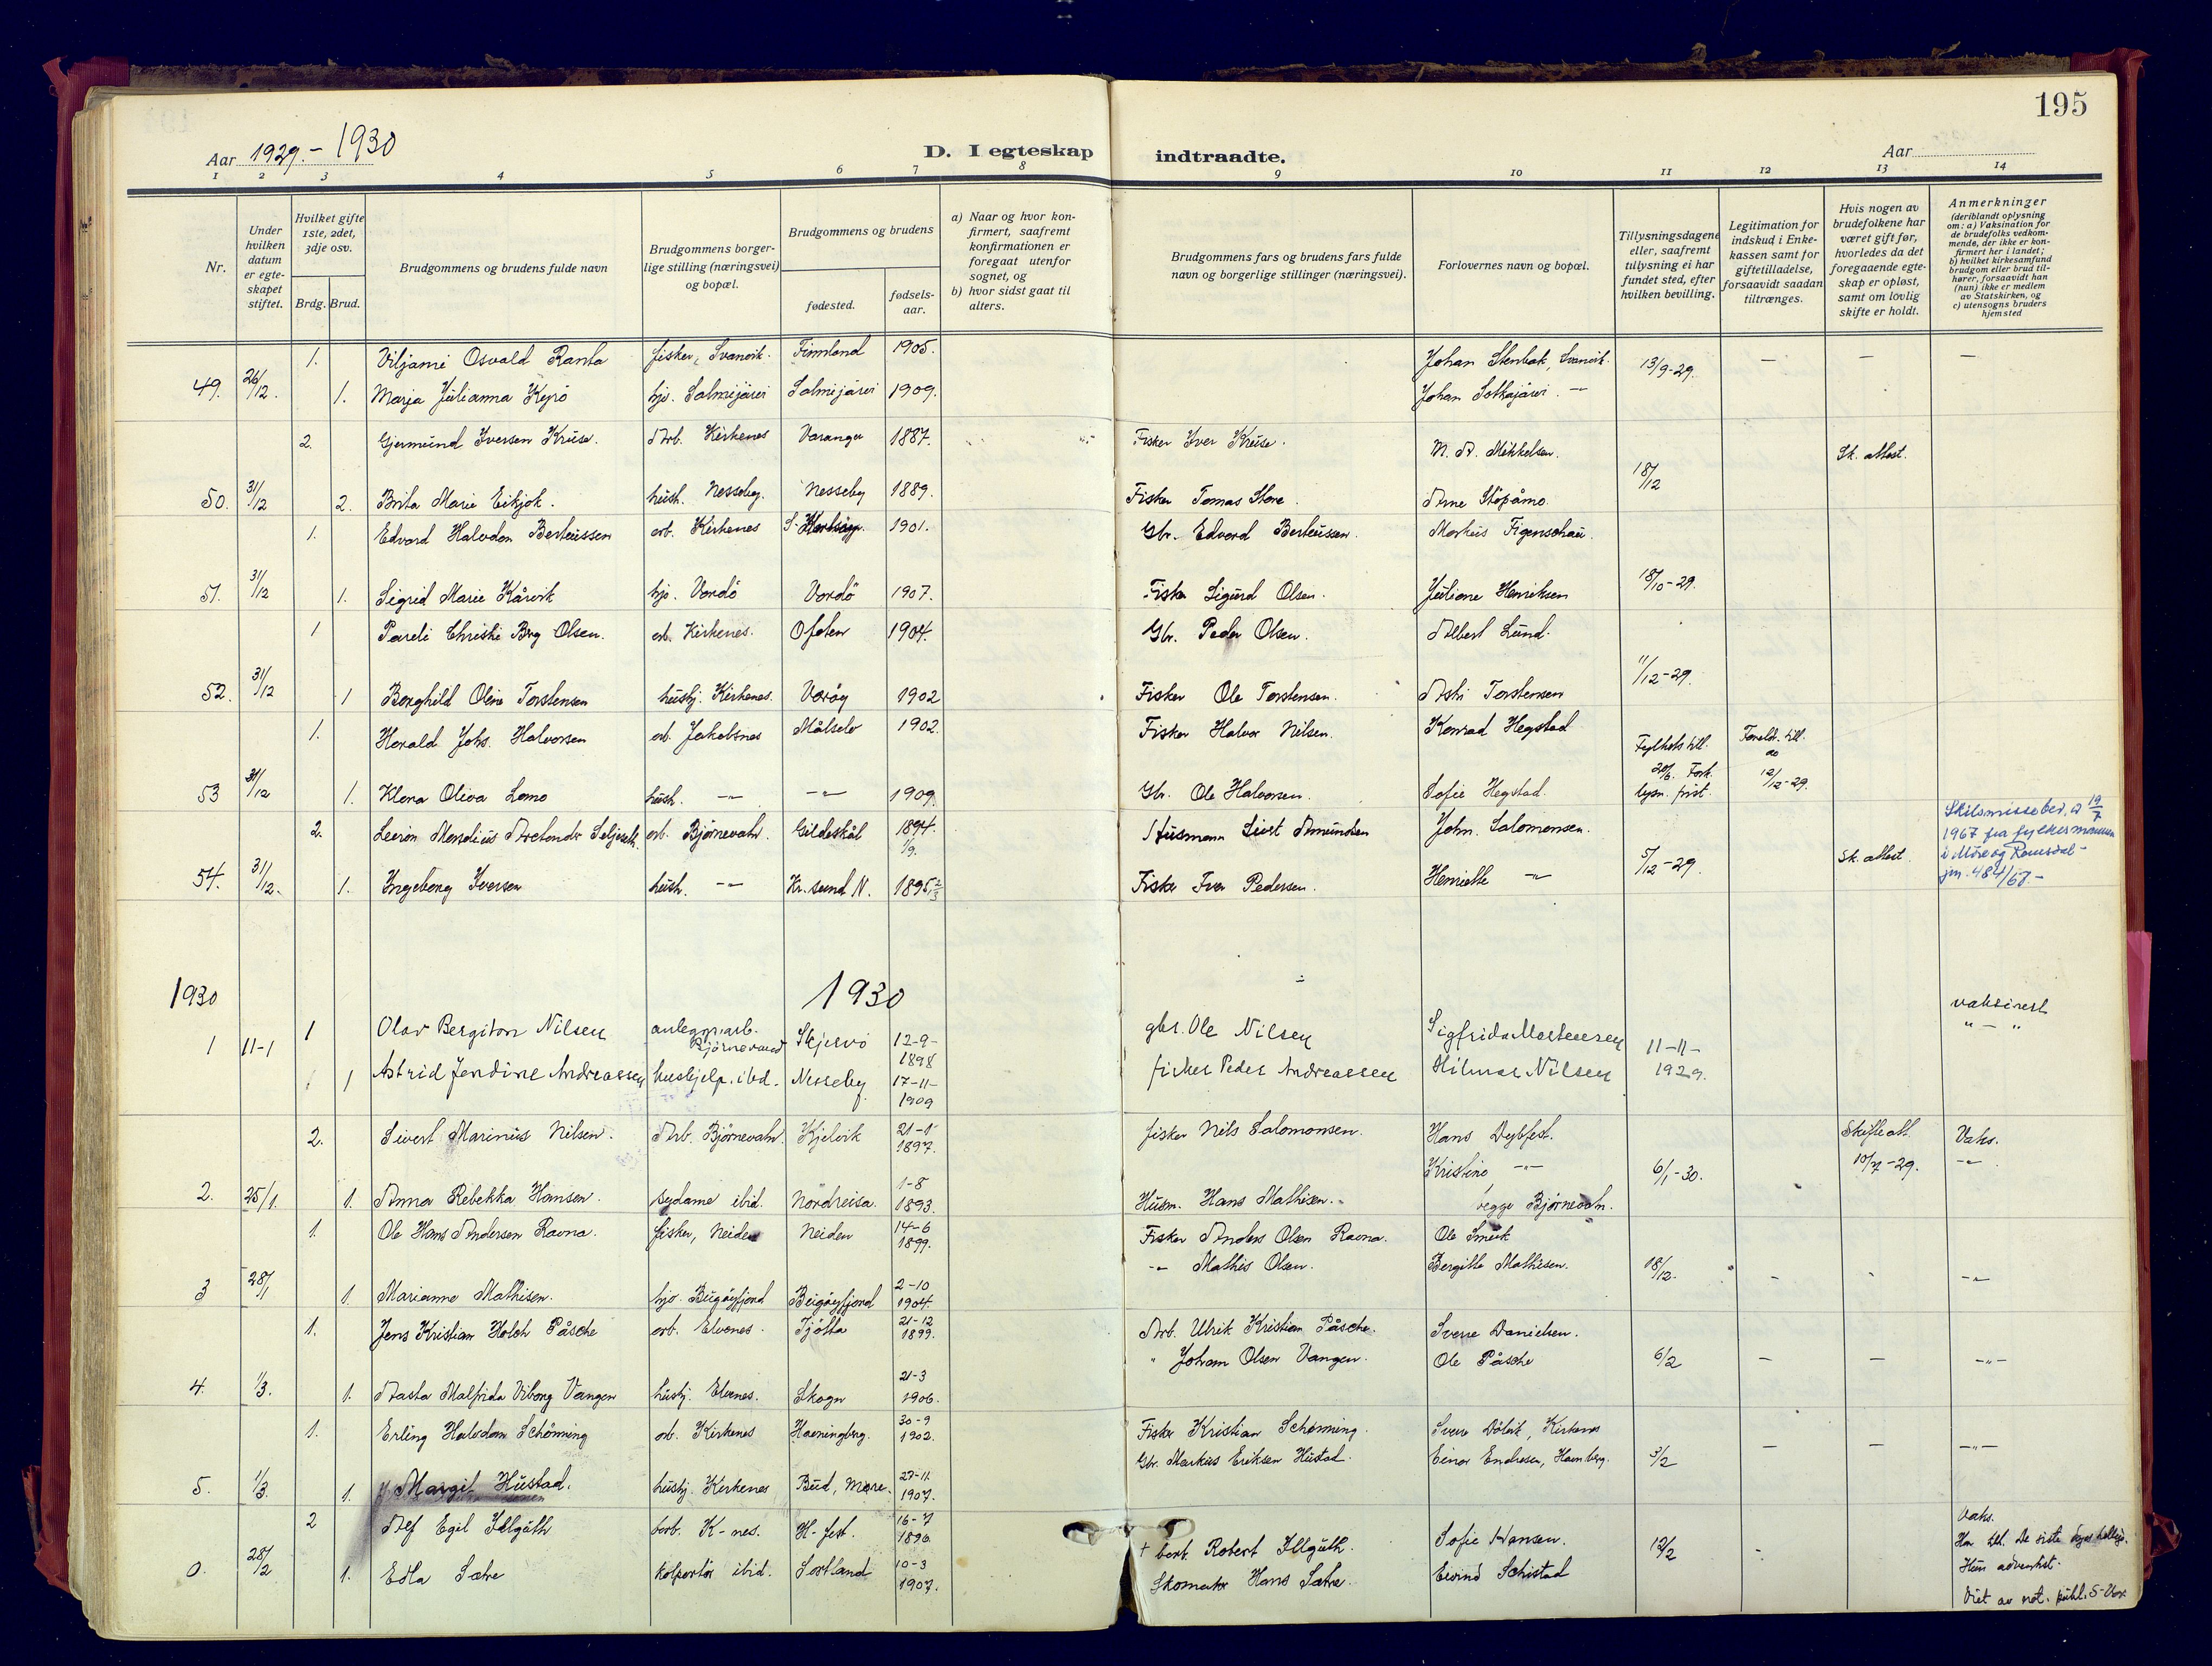 195
Aar 1929.- 1930
D. I egteskap indtraadte.
Aar
1 2 3 4 5 6 7 8 9 10 11 12 13 14
Nr.
Under hvilken datum er egteskapet stiftet.
Hvilket gifte 1ste, 2det, 3dje osv.
Brdg. Brud.
Brudgommens og brudens fulde navn
Brudgommens borgerlige stilling (næringsvei) og bopæl.
Brudgommens og brudens
fødested.
fødselsaar.
a) Naar og hvor konfirmert, saafremt konfirmationen er foregaat utenfor sognet, og
b) hvor sidst gaat til alters.
Brudgommens fars og brudens fars fulde navn og borgerlige stillinger (næringsvei).
Forlovernes navn og bopæl.
Tillysningsdagene eller, saafremt tillysning ei har fundet sted, efter hvilken bevilling.
Legitimation for indskud i Enkekassen samt for giftetilladelse, forsaavidt saadan tiltrænges.
Hvis nogen av brudefolkene har været gift før, hvorledes da det foregaaende egteskap er opløst, samt om lovlig skifte er holdt.
Anmerkninger (deriblandt oplysning om: a) Vaksination for de brudefolks vedkommende, der ikke er konfirmert her i landet; b) hvilket kirkesamfund brudgom eller brud tilhører, forsaavidt han (hun) ikke er medlem av Statskirken, og c) utensogns bruders hjemsted
1. Viljami Osvald Ranta fisker, Svanvik. Finnland 1905. Johan Stenbak, Svanvik. 13/9-29. — — —
49. 26/12. 1. Marja Julianna Kepö hjv. Salmijärvi Salmijärvi 1909. Johan Sotkajärvi. -"-
2. Gjermund Iversen Kruse. Arb. Kirkenes Varanger 1887. Fisker Iver Kruse. M. A. Mikkelsen. Sk. attest.
50. 31/12 2. Brita Marie Eikjok. hush. Nesseby. Nesseby 1889. Fisker Tomas Store. Arne Stöpåmo. 18/12
1. Edvard Halvdan Berteussen arb. Kirkenes 1901. Gbr. Edvard Berteussen. Markus Figenschau.
51. 31/12 1. Sigrid Marie Kårvik hjv. Vardö Vardö 1907. Fisker Sigurd Olsen. Juliane Henriksen 18/10-29.
1 Pareli Christi Berg Olsen. arb. Kirkenes. Ofoten 1904. Gbr. Peder Olsen. Albert Lund.
52. 31/12 1 Borghild Oline Torstensen hushj. Kirkenes. Veröy 1902 Fisker Ole Torstensen. Astri Torstensen 11/12-29.
1. Harald Johs. Halvorsen arb. Jakobsnes Målselv 1902. Fisker Halvor Nilsen. Konrad Hegstad Fylkets till. Foreldr. till.
53 31/12 1. Klara Oliva Lamo hush. -"- -"- 1909. Gbr. Ole Halvorsen. Sofie Hegstad. 20/6. Fork. lysn. frist. 12/12-29.
2. Leeron Mardius Arctander Seljeseth. arb. Björnevatn. Gildeskål 1894. 1/9. Husmann Sivert Amundsen John. Salomonsen. Skilsmissebev. a 19/7 1967 fra fylkesmannen i Möre og Romsdal - jnr. 484/67.-
54. 31/12. 1. Ingeborg Iversen hush. -"- Kr. sund N. 1895 2/3 Fisker Iver Pedersen. Henriette -"- 5/12-29. Sk. attest.
1930 1930
1 11-1 1 Olav Bergiton Nilsen anleggsarb. Bjørnevand Skjervö 12-9-1898 gbr. Ole Nilsen Sigfrida Mortensen 11-11-1929. vaksinert
1 Astrid Jendine Andreassen hushjelp. ibd. Nesseby 17-11-1909 fisker Peder Andreassen Hilmar Nilsen " - "
2. Sivert Marinus Nilsen. Arb. Björnevatn. Kjelvik 21-1 1897. fisker Nils Salomonsen. Hans Dybfest. Skifteatt. 10/7-29. Vaks.
2. 25/1. 1. Anna Rebekka Hansen. sydame ibid. Nordreisa. 1-8 1893. Husm. Hans Mathisen. Kristine -"- begge Björnevatn. 6/1-30. -"-
1. Ole Hans Andersen Ravna. fisker, Neiden Neiden 14-6 1899. Fisker Anders Olsen Ravna. Ole Smuk
3 28/1 1. Marianne Mathisen. hjv. Bugöyfjord Bugöyfjord 2-10 1904. -"- Mathis Olsen. Bergitte Mathisen. 18/12. - - -"-
1. Jens Kristian Holch Påsche arb. Elvenes. Tjötta 21-12 1899. Arb. Ulrik Kristian Påsche. Sverre Danielsen.
4. 1/3. 1. Aasta Malfrida Viborg Vangen hushj. Elvenes. Skogn 21-3 1906. " Johan Olsen Vangen. Ole Påsche 6/2 — — -"-
1. Erling Halvdan Schönning arb. Kirkenes Havningberg. 30-9 1902. Fisker Kristian Schönning. Sverre Dölvik, Kirkenes
5. 1/3. 1. Margit Hustad. hushj. Kirkenes Bud, Möre. 27-11 1907. Gbr. Markus Eriksen Hustad. Einar Endresen, Havnberg. 3/2 — — -"-
2 Alf Egil Illguth K-nes. H-fest. 16-7 1896 + Robert Illguth. Sofie Hansen. Vaks. Han till. De siste dages hellige.
0. 28/2 1. Edla Sætre kolportör ibid. Sortland 10-3 1907. Skomaker Hans Sætre. Eivind Schistad 12/2 - Hun adventist. Viet av not. publ. S-Var.